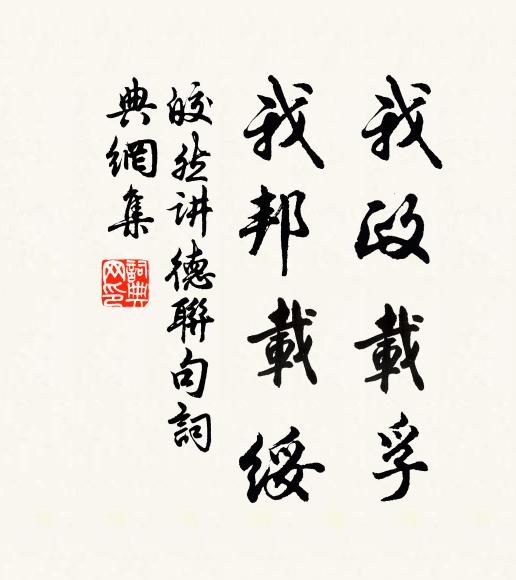 我政載孚
我邦載綏
皎然讲德聯句詞
典網集
詞典
网印